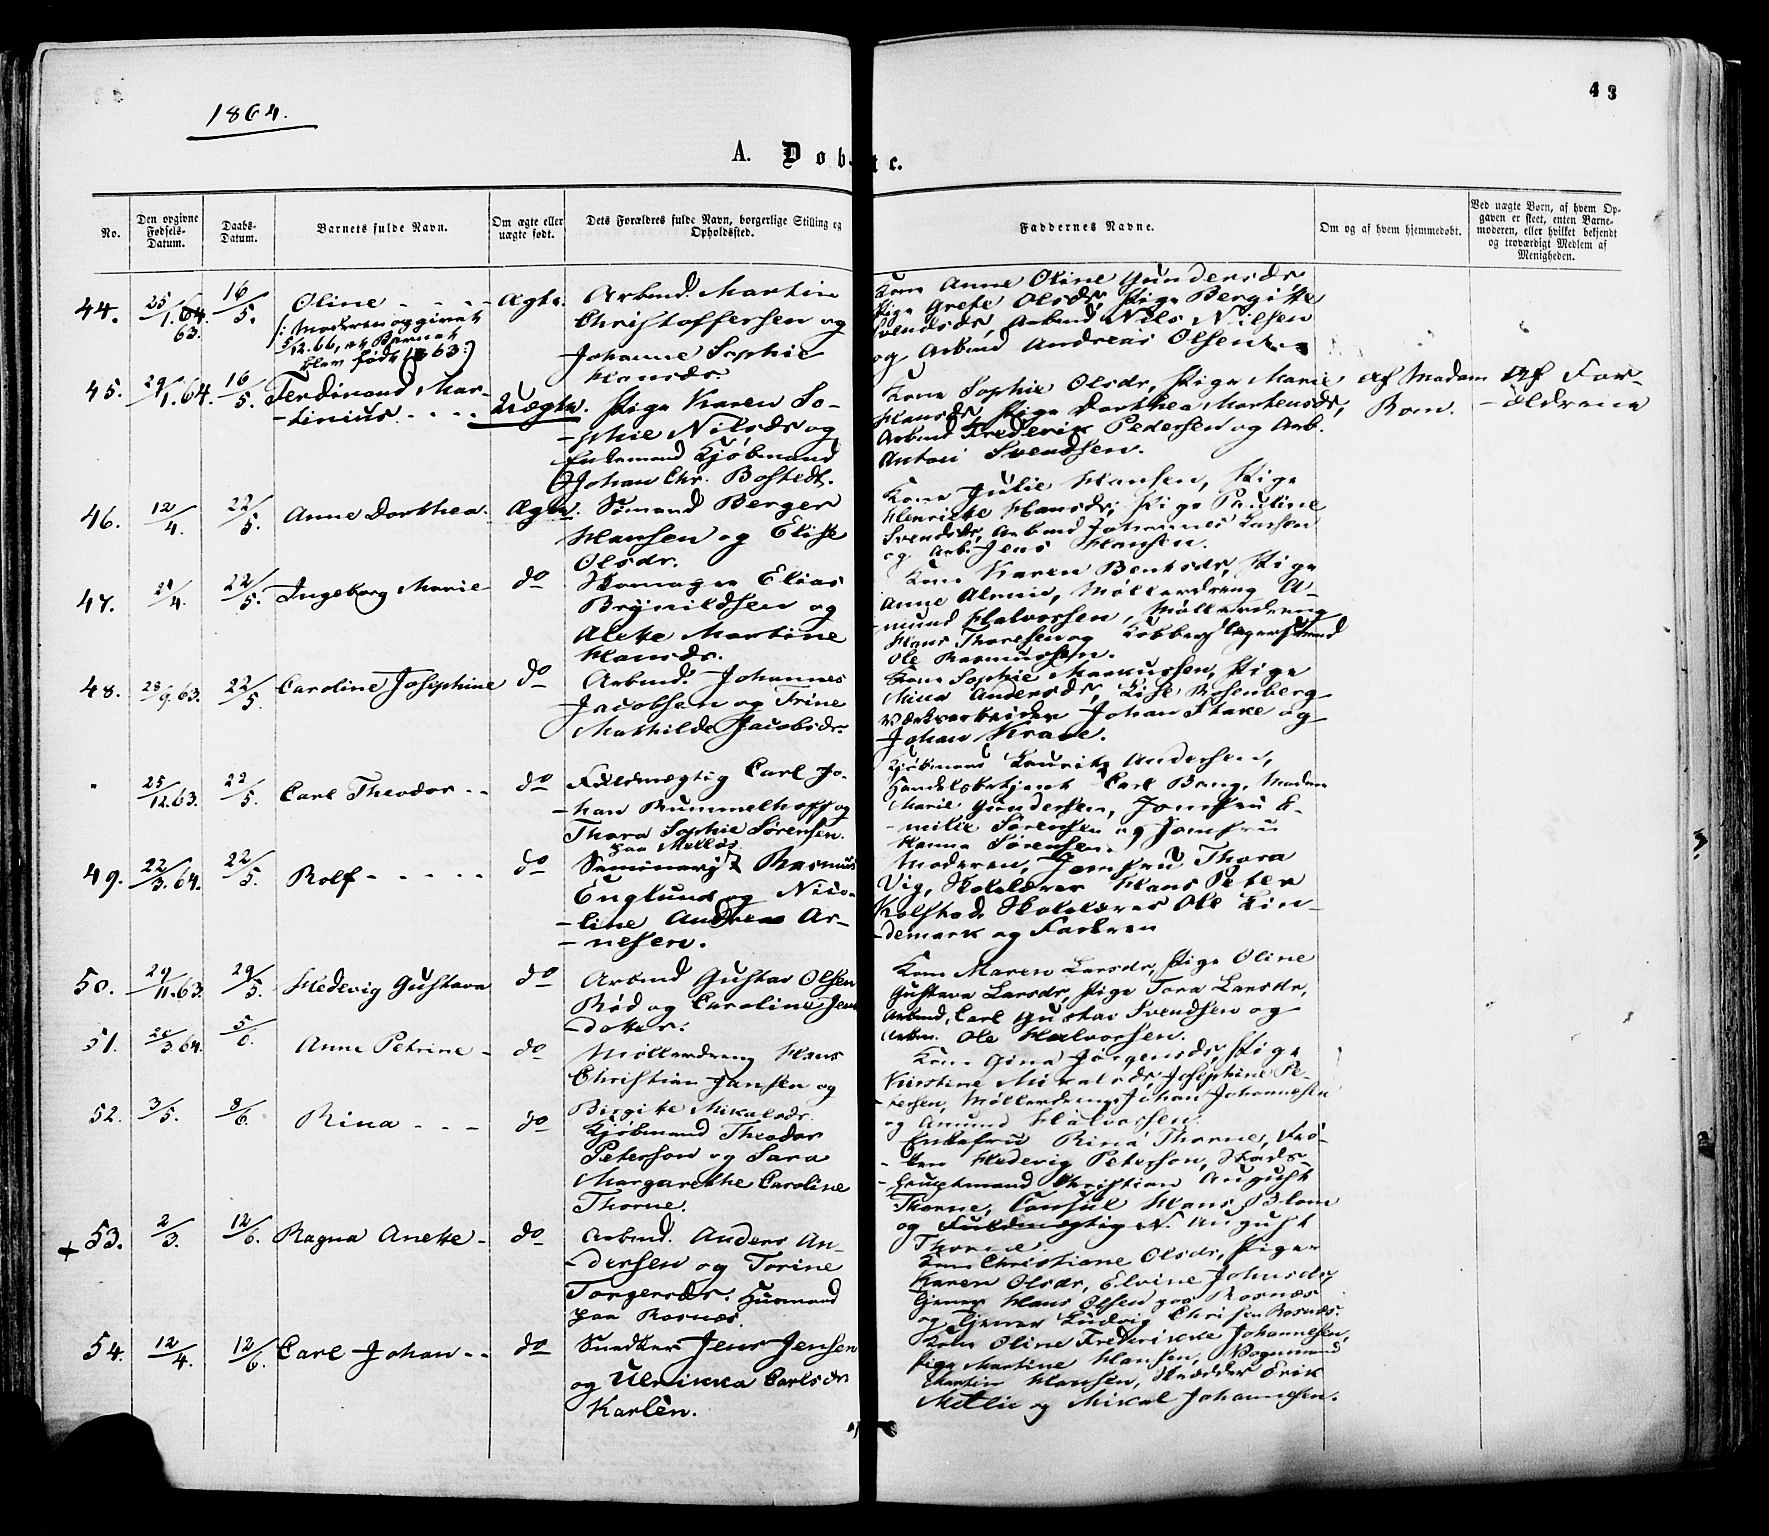 1864.
43
A. Døbte.
No.
Den opgivne Fødsels-Datum.
Daabs-Datum.
Barnets fulde Navn.
Om ægte eller uægte født.
Dets Forældres fulde Navn, borgerlige Stilling og Opholdssted.
Faddernes Navne.
Om og af hvem hjemmedøbt.
Ved uægte Børn, af hvem Opgaven er skeet, enten Barnemoderen, eller hvilket bekjendt og troværdigt Medlem af Menigheden.
44. 25/1.64. 63. 16/5. Oline - - - Ægte.
(: Moderen opgivet
5/12.66, at Barnet
blev født 1863:)
Arbmd. Martin
Christoffersen og
Johanne Sophie
Hansdr.
Kone Anne Oline Gundersdr,
Pige Grete Olsdr, Pige Bergitte
Svendsdr, Arbmd Nils Nilsen
og Arbmd Andreas Olsen
45. 29/1.64. 16/5. Ferdinand Mar-
-tinius. - - - Uægte.
Pige Karen So-
-phie Nilsdr og
Enkemand Kjøbmand
Johan Chr. Bostedt.
Kone Sophie Olsdr, Pige Marie
Hansdr, Pige Dorthea Mortensdr,
Arbmd Frederik Pedersen og Arb.
Anton Svendsen.
Af Madam
Bom.
Af For-
-ældrene
46. 12/4. 22/5. Anne Dorthea. Ægte.
Sømand Berger
Hansen og Elise
Olsdr.
Kone Julie Hansen, Pige
Henriette Hansdr, Pige Pauline
Svendsdr, Arbmd Johannes Larsen
og Arb. Jens Hansen.
47. /4. 22/5. Ingeborg Marie do
Skomager Elias
Brynildsen og
Alette Martine
Hansdr.
Kone Karen Bentsdr, Pige
Anne Almine, Møllerdreng A-
-mund Halvorsen, Møllerdreng
Hans Thoresen og Kobberslagersvend
Ole Rasmussen.
48. 28/9.63. 22/5. Caroline Josephine do
Arbmd. Johannes
Jacobsen og Trine
Mathilde Jacobsdr.
Kone Sophie Markussen, Pige
Mina Andersdr, Lise Rosenberg
Værksarbeider Johan Stake og
Johan Krave.
" 25/12.63. 22/5. Carl Theodor - - do
Fuldmægtig Carl Jo-
-han Rummelhoff og
Thora Sophie Sørensen.
paa Melløs
Kjøbmand Lauritz Andersen,
Handelsbetjent Carl Bang, Madam
Marie Gundersen, Jomfru E-
-milie Sørensen og Jomfru
Hanna Sørensen.
49. 22/3.64. 22/5. Rolf - - - - - do
Seminarist Rasmus
Englund og Nico-
-line Andrea Ar-
-nesen.
Moderen, Jomfru Thora
Vig, Skolelærer Hans Peter
Kolstad, Skolelærer Ole Lin-
-demark og Faderen
50. 29/11.63. 29/5. Hedevig Gustava do
Arbmd Gustav Olsen
Rød og Caroline Jens
-datter.
Kone Maren Larsdr, Pige Oline
Gustava Larsdr, Pige Tora Larsdr,
Arbmd, Carl Gustav Svendsen og
Arbm. Ole Halvorsen.
51. 26/3.64. 5/6. Anne Petrine - do
Møllerdreng Hans
Christian Jansen og
Birgite Mikalsdr.
Kone Gina Jørgensdr, Pige
Kirstine Mikalsdr, Josephine Pe-
-tersen, Møllerdreng Johan Johannesen
og Amund Halvorsen.
52. 3/5. 8/6. Rina - - - do
Kjøbmand Theodor
Peterson og Sara
Margarethe Caroline
Thorne.
Enkefru Rina Thorne, Frø-
-ken Hedevig Peterson, Stads-
-hauptmand Christian August
Thorne, Consul Hans Blom
og Fuldmægtig N. August
Thorne.
+ 53. 2/3. 12/6. Ragna Anette - do
Arbmd. Anders An-
-dersen og Torine
Torgersdr. Husmand
paa Rosnæs.
Kone Christiane Olsdr, Piger
Karen Olsdr, Elvine Johnsdr,
tjener Hans Olsen paa Rosnæs
og tjener Ludvig Chrisen Rosnæs.
54. 12/4. 12/6. Carl Johan - - do
Snedker Jens Jensen
og Ulrikka Carlsdr
Karlèn.
Kone Oline Frederikke Johannesen,
Pige Martine Hansen, Vognmand
Martin Hansen, Skrædder Erik
Metlie og Mikal Johannesen.